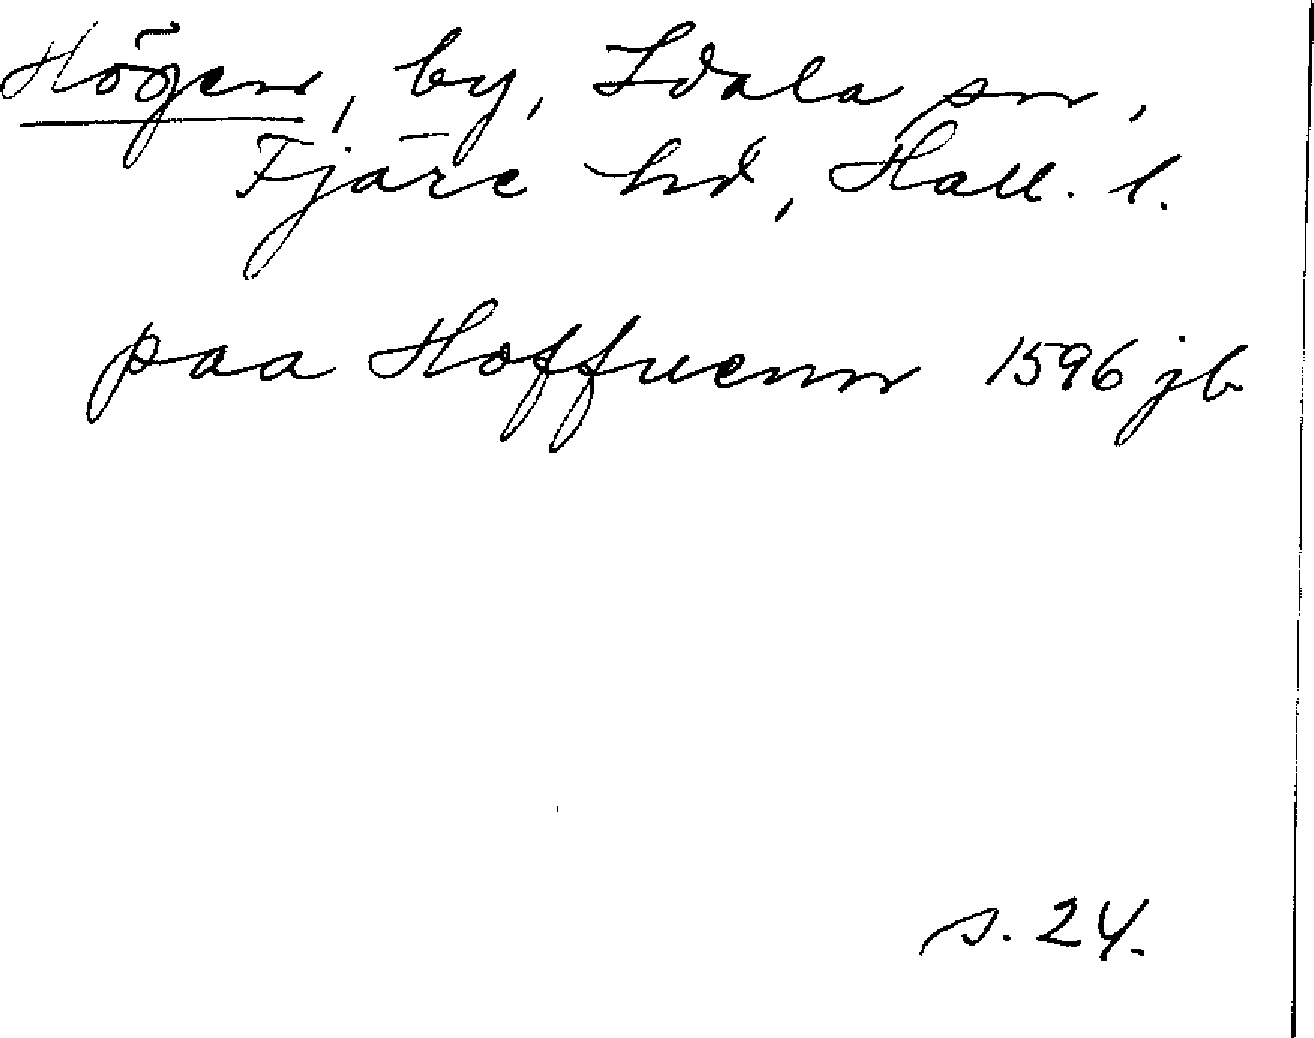 Högen, by, Idala sn,
Fjäre hd, Hall. l.
paa Hoffuenn 1596 jb
s. 24.